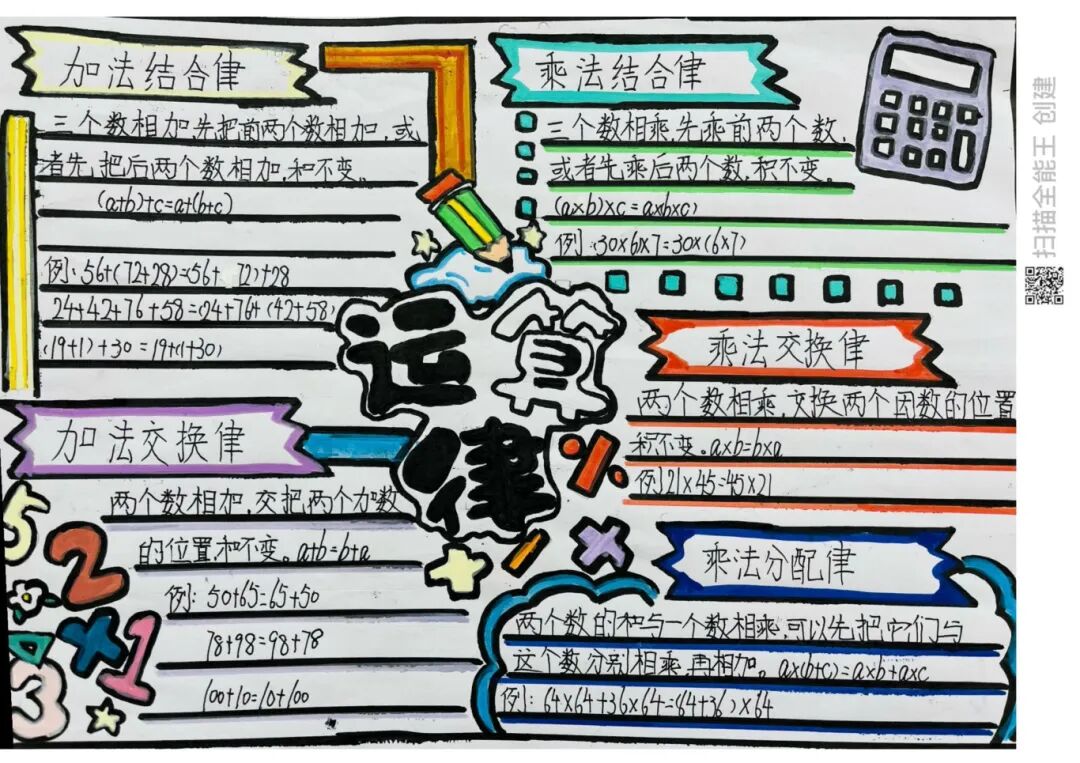 加法结合律
三个数相加,先把前两个数相加,或
者先把后两个数相加,和不变。
(a+b)+c=a+(b+c)
例:56+(72+28)=56+ 72)+28
24+42+76+58=(24+76+(42+58)
(19+1)+30=19+(1+30)
乘法结合律
三个数相乘,先乘前两个数,
或者先乘后两个数,积不变。
(a×b)×c=a×b×c)
例:30×6)×7=30×(6×7)
运算
律
乘法交换律
两个数相乘,交换两个因数的位置
积不变。a×b=b×a
例21×45=45×21
加法交换律
两个数相加,交把两个加数
的位置和不变。a+b=b+a
例:50+65=65+50
78+98=98+78
100+10=10+100
乘法分配律
两个数的和与一个数相乘,可以先把它们与
这个数分别相乘,再相加。a×(b+c)=a×b+a×c
例:64×64+36×64=(64+36)×64
5
2
1
3
扫描全能王 创建